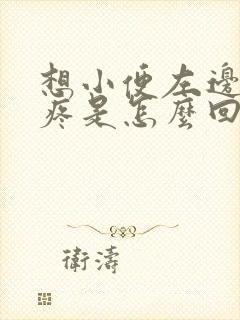 想小便左邊
疼是怎麼回
衛濤